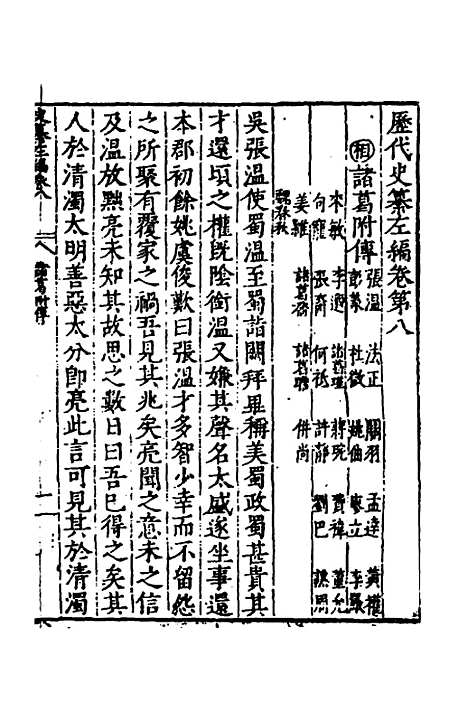 歷代史纂左編卷第八
相 諸葛附傳 張溫 法正 關羽 孟達 黃權
彭羕 杜微 姚伷 廖立 李嚴
來敏 李邈 蔣琬 費禕 董允
向寵 張裔 何祗 許靜 劉巴 譙周
姜維 諸葛喬 諸葛瞻 併尚
吳張溫使蜀溫至蜀詣闕拜畢稱美蜀政蜀甚貴其
才還頃之權既陰銜溫又嫌其聲名太盛遂坐事還
本郡初餘姚虞俊歎曰張溫才多智少幸而不留怨
之所聚有覆家之禍吾見其兆矣亮聞之意未之信
及溫放黜亮未知其故思之數日曰吾已得之矣其
人於清濁太明善惡太分即亮此言可見其於清濁
史纂左編卷八 諸葛附傳